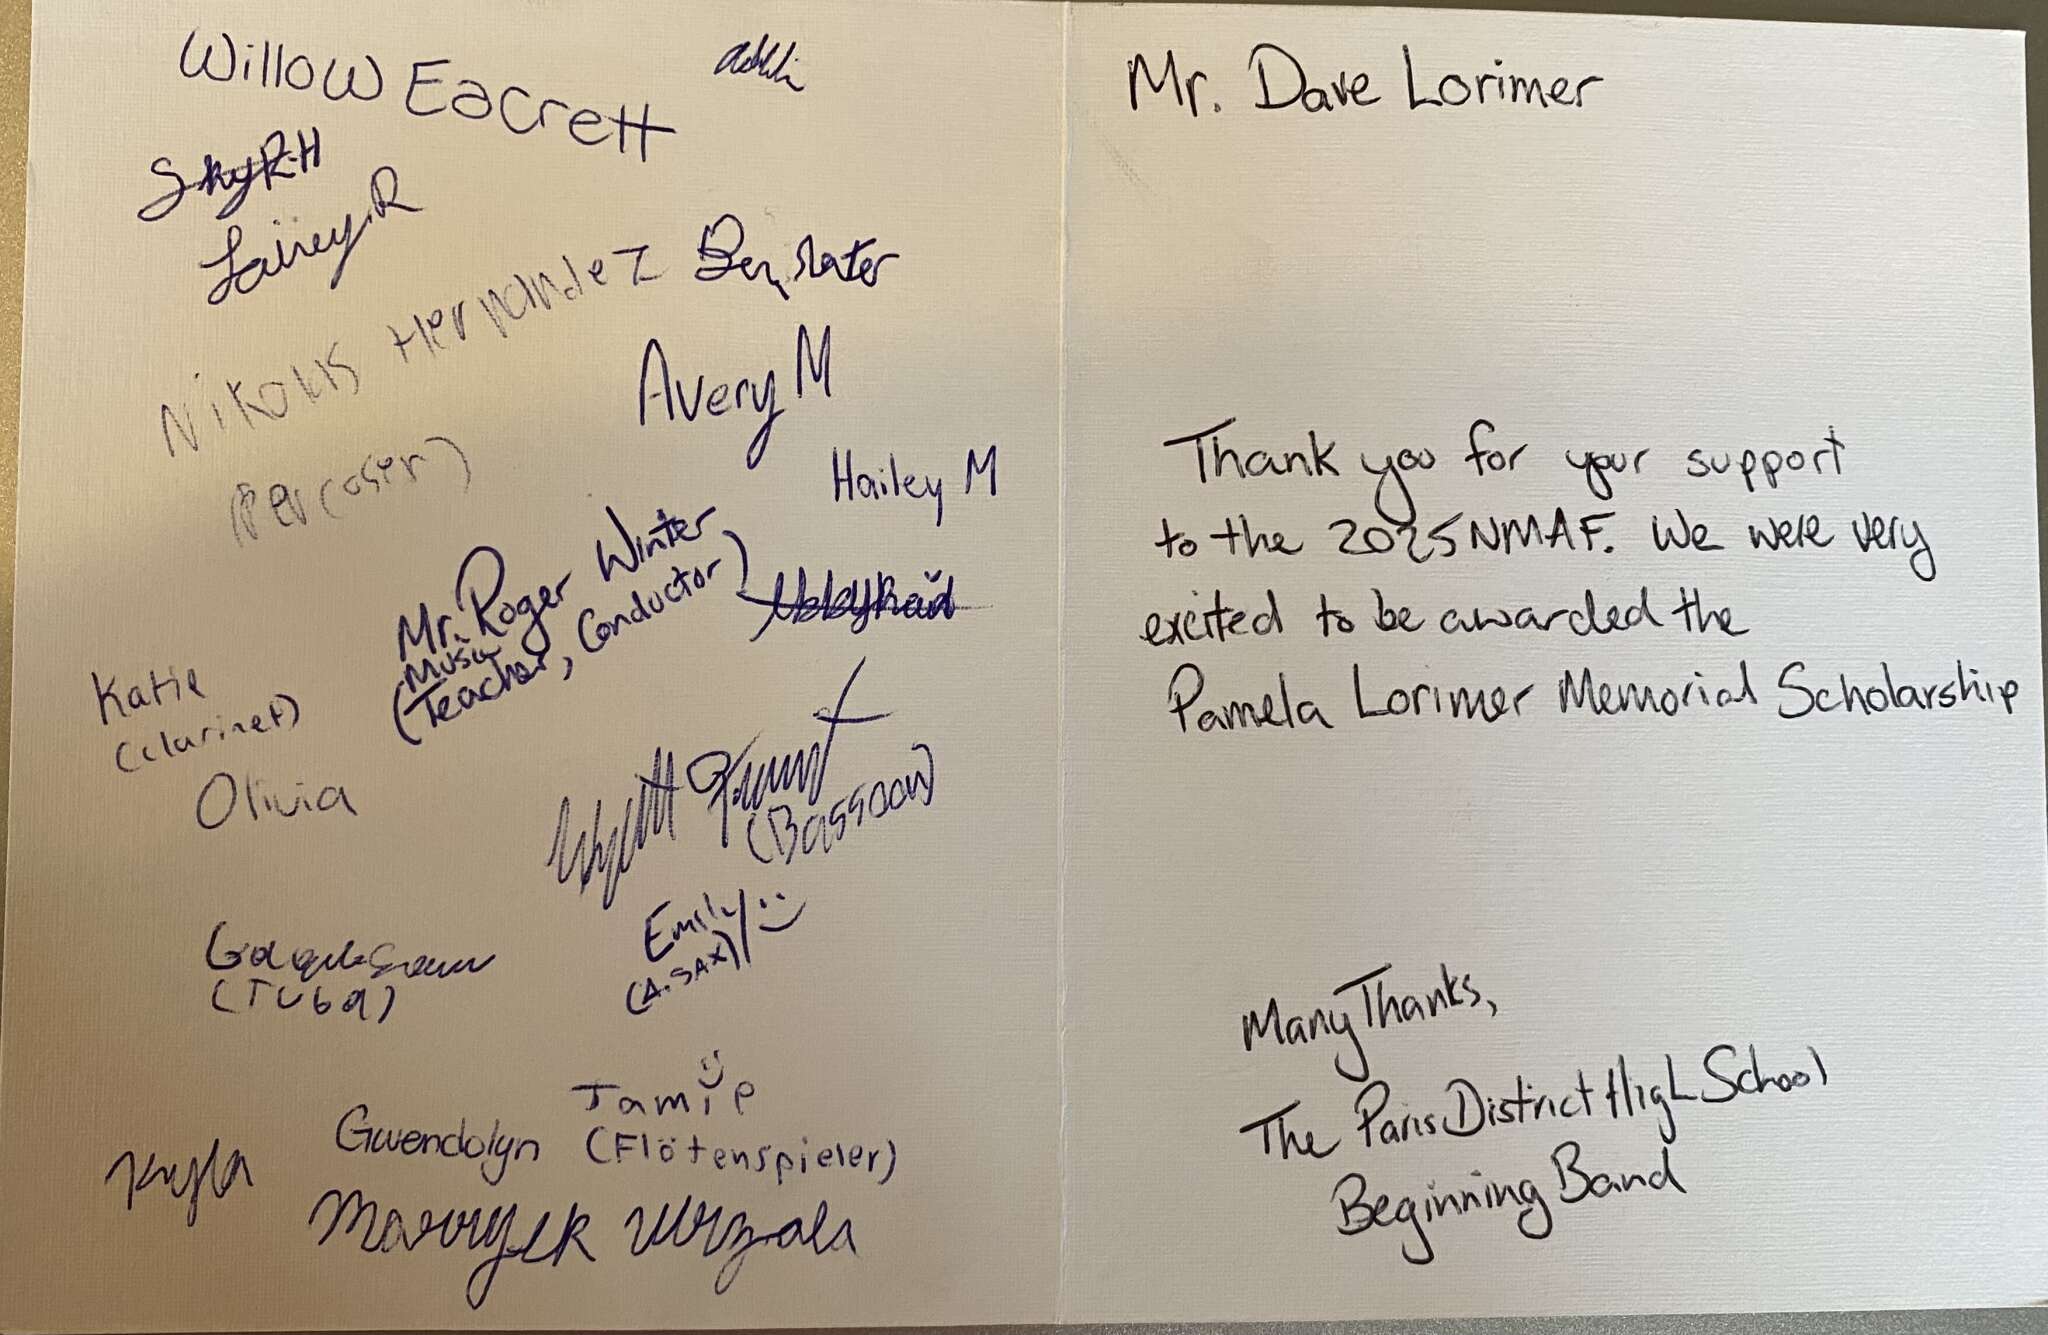 Willow Eacrett
Sky R.H
Lailey.R
Nikolas Hernandez
Ben Slater
Avery M
(Percoser)
Hailey M
Mr. Roger Winter
(Music Teacher, Conductor)
Katie
(clarinet)
Olivia
Wyatt
(Bassoon)
Emily :)
(A.SAX)
(Tuba)
Jamie
Gwendolyn
(Flötenspieler)
Kyla
Mr. Dave Lorimer
Thank you for your support
to the 2025 NMAF. We were very
excited to be awarded the
Pamela Lorimer Memorial Scholarship
Many Thanks,
The Paris District High School
Beginning Band